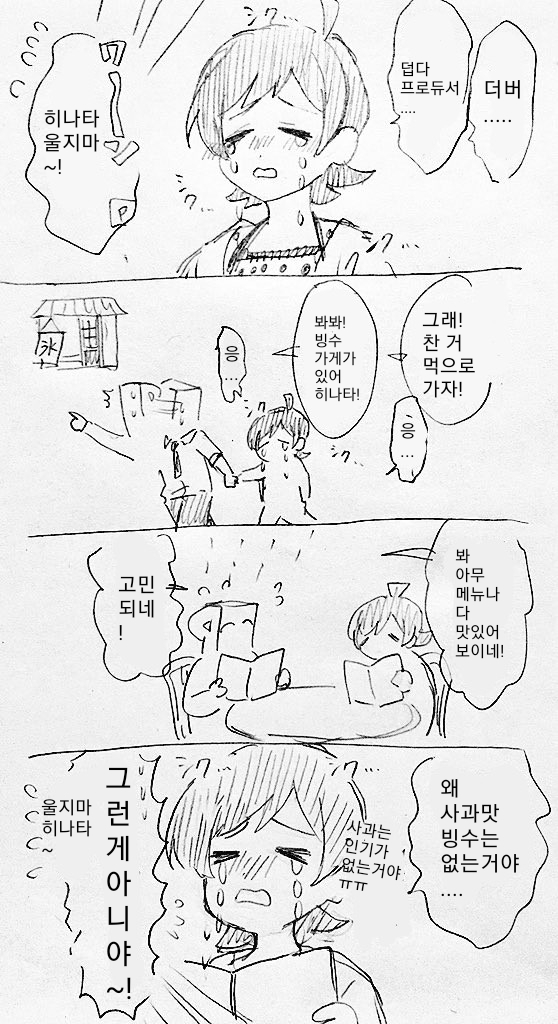 더버
.....
덥다
프로듀서
....
히나타
울지마
~!
シク...
シク...
그래!
찬 거
먹으로
가자!
응
...
봐봐!
빙수
가게가
있어
히나타!
응
...
シク...
氷
봐
아무
메뉴나
다
맛있어
보이네!
고민
되네
!
왜
사과맛
빙수는
없는거야
....
사과는
인기가
없는거야
ㅠㅠ
그런게아니야~!
울지마
히나타
~